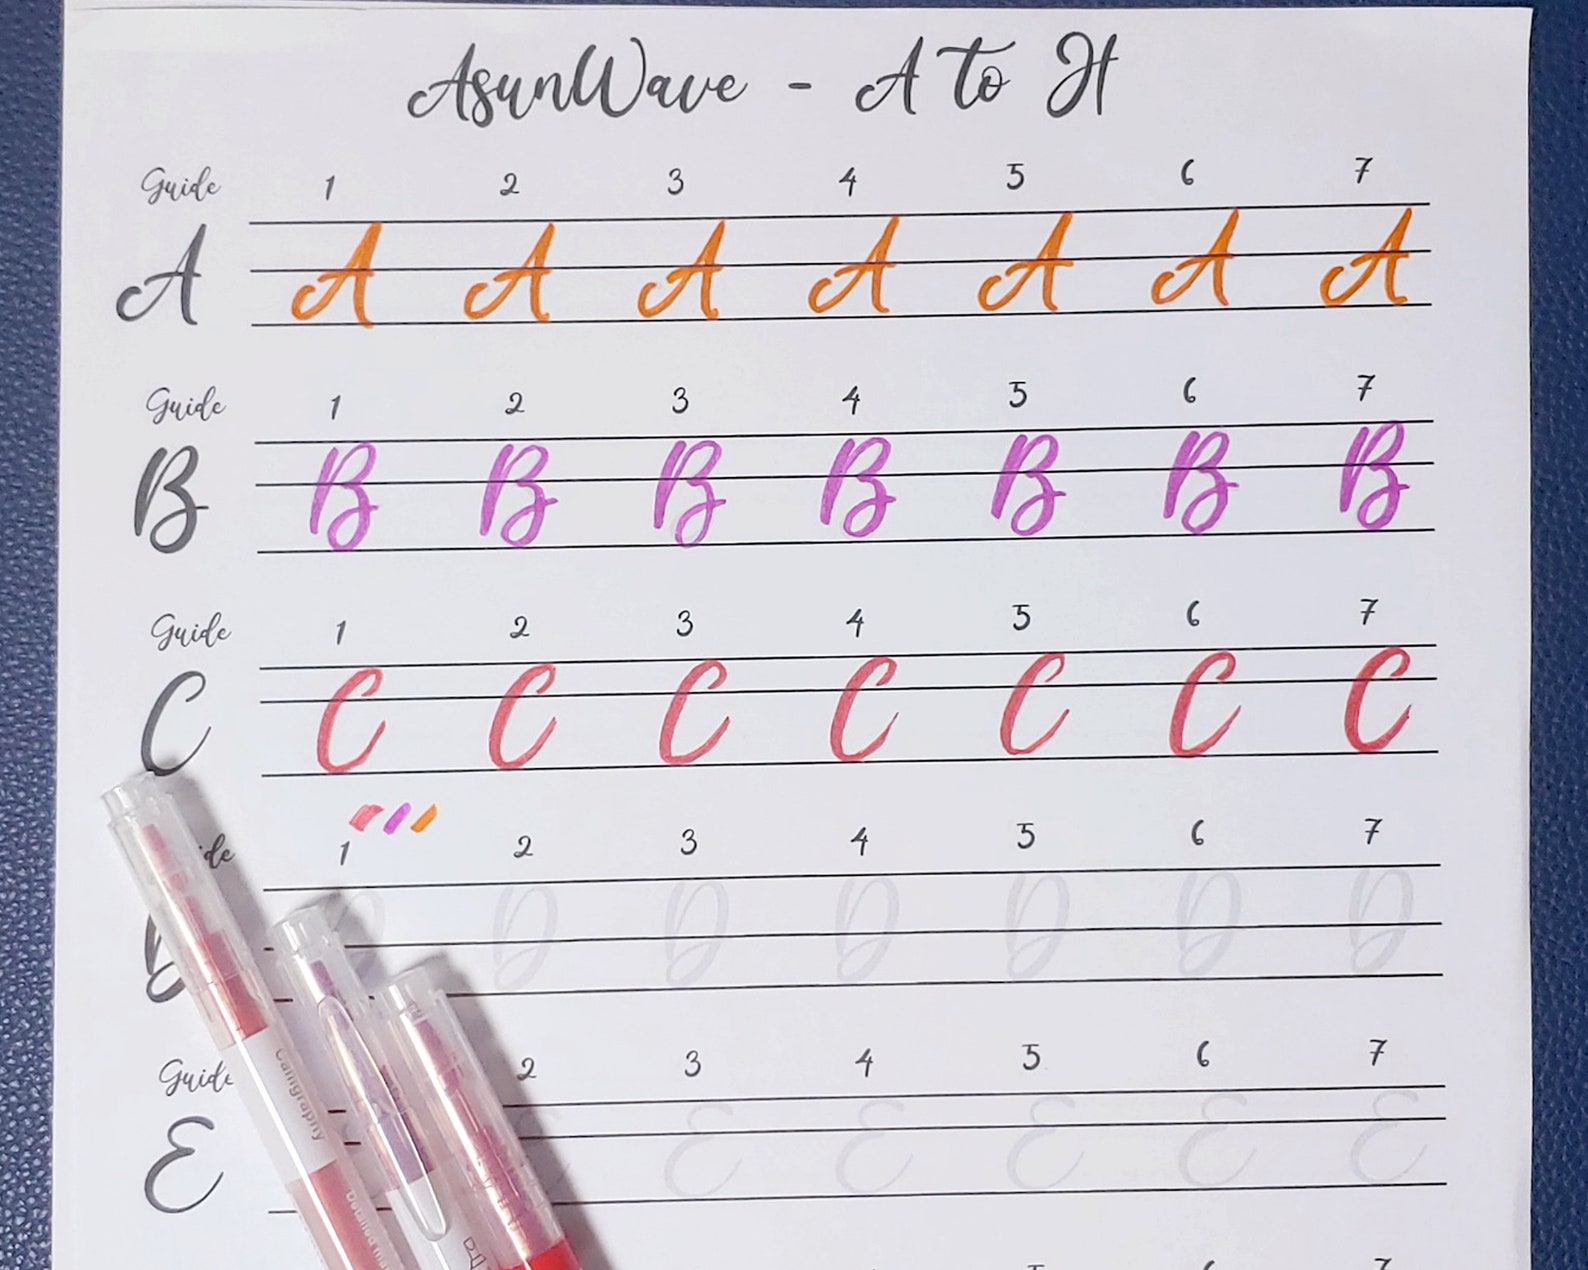 AsunWave - A to H
Guide 1 2 3 4 5 6 7
A A A A A A A A
Guide 1 2 3 4 5 6 7
B B B B B B B B
Guide 1 2 3 4 5 6 7
C C C C C C C C
ide 1 2 3 4 5 6 7
D D D D D D D D
Guide 2 3 4 5 6 7
E E E E E E
Calligraphy